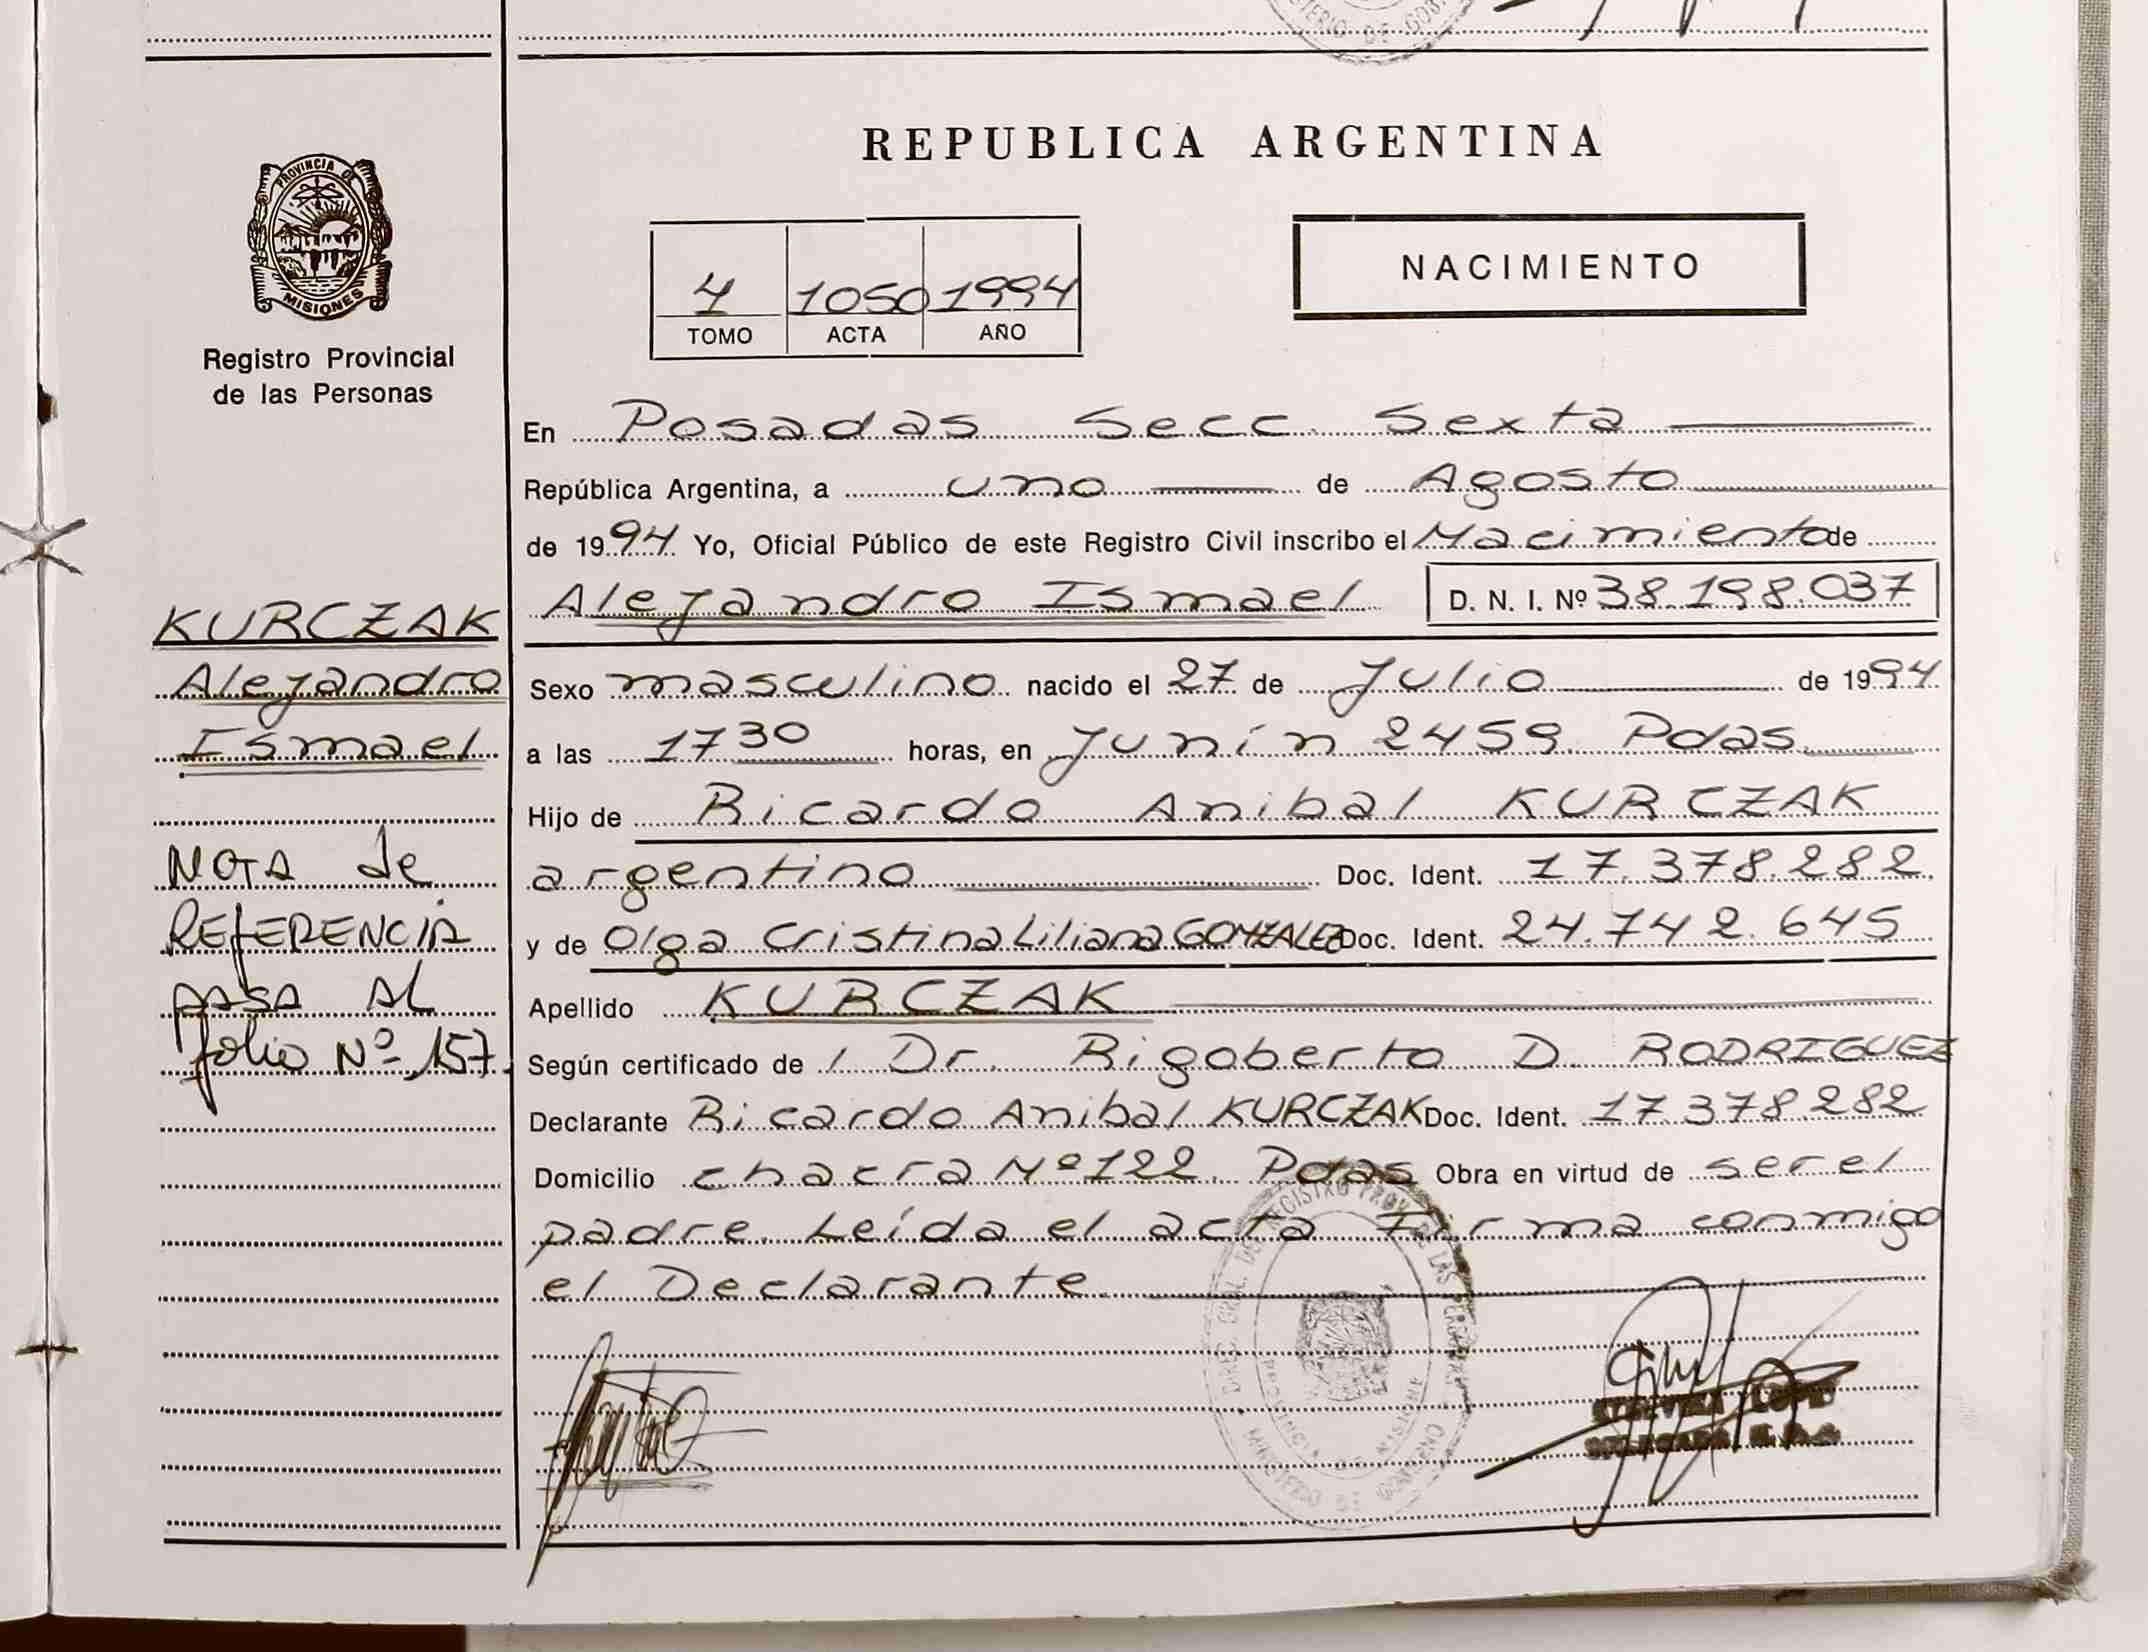 MINISTERIO DE GOB
PROVINCIA DE
MISIONES
Registro Provincial
de las Personas
KURCZAK
Alejandro
Ismael
NOTA de
REFERENCIA
PASA AL
folio Nº 157
REPUBLICA ARGENTINA
4 1050 1994
TOMO ACTA AÑO
NACIMIENTO
En Posadas Secc. Sexta
República Argentina, a uno de Agosto
de 1994 Yo, Oficial Público de este Registro Civil inscribo el Nacimiento de
Alejandro Ismael D. N. I. Nº 38.198.037
Sexo masculino nacido el 27 de Julio de 1994
a las 17 30 horas, en Junín 2459 Pdas.
Hijo de Ricardo Anibal KURCZAK
argentino Doc. Ident. 17.378.282
y de Olga Cristina Liliana GONZALEZ Doc. Ident. 24.742.645
Apellido KURCZAK
Según certificado de / Dr. Rigoberto D. RODRIGUEZ
Declarante Ricardo Anibal KURCZAK Doc. Ident. 17.378.282
Domicilio chacra Nº 122. Pdas Obra en virtud de ser el
padre. Leída el acta Firma conmigo
el Declarante.
DIREC. GRAL. DEL REGISTRO PROV. DE LAS PERSONAS
PROVINCIA DE MISIONES
MINISTERIO DE GOBIERNO